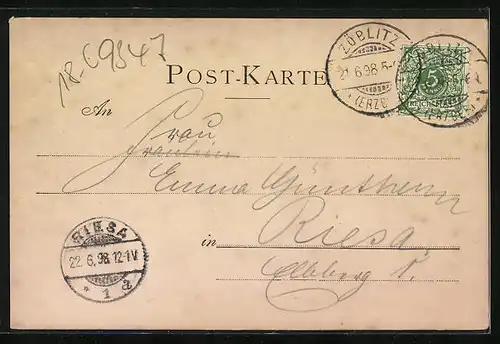 18-69347
ZÖBLITZ
21.6.98.5-
* (ERZG
5
POST-KARTE
An
Frau
Fräulein
Emma Günther
in Riesa
Elbberg 1.
RIESA
22.6.98.12-1V.
* 1 a